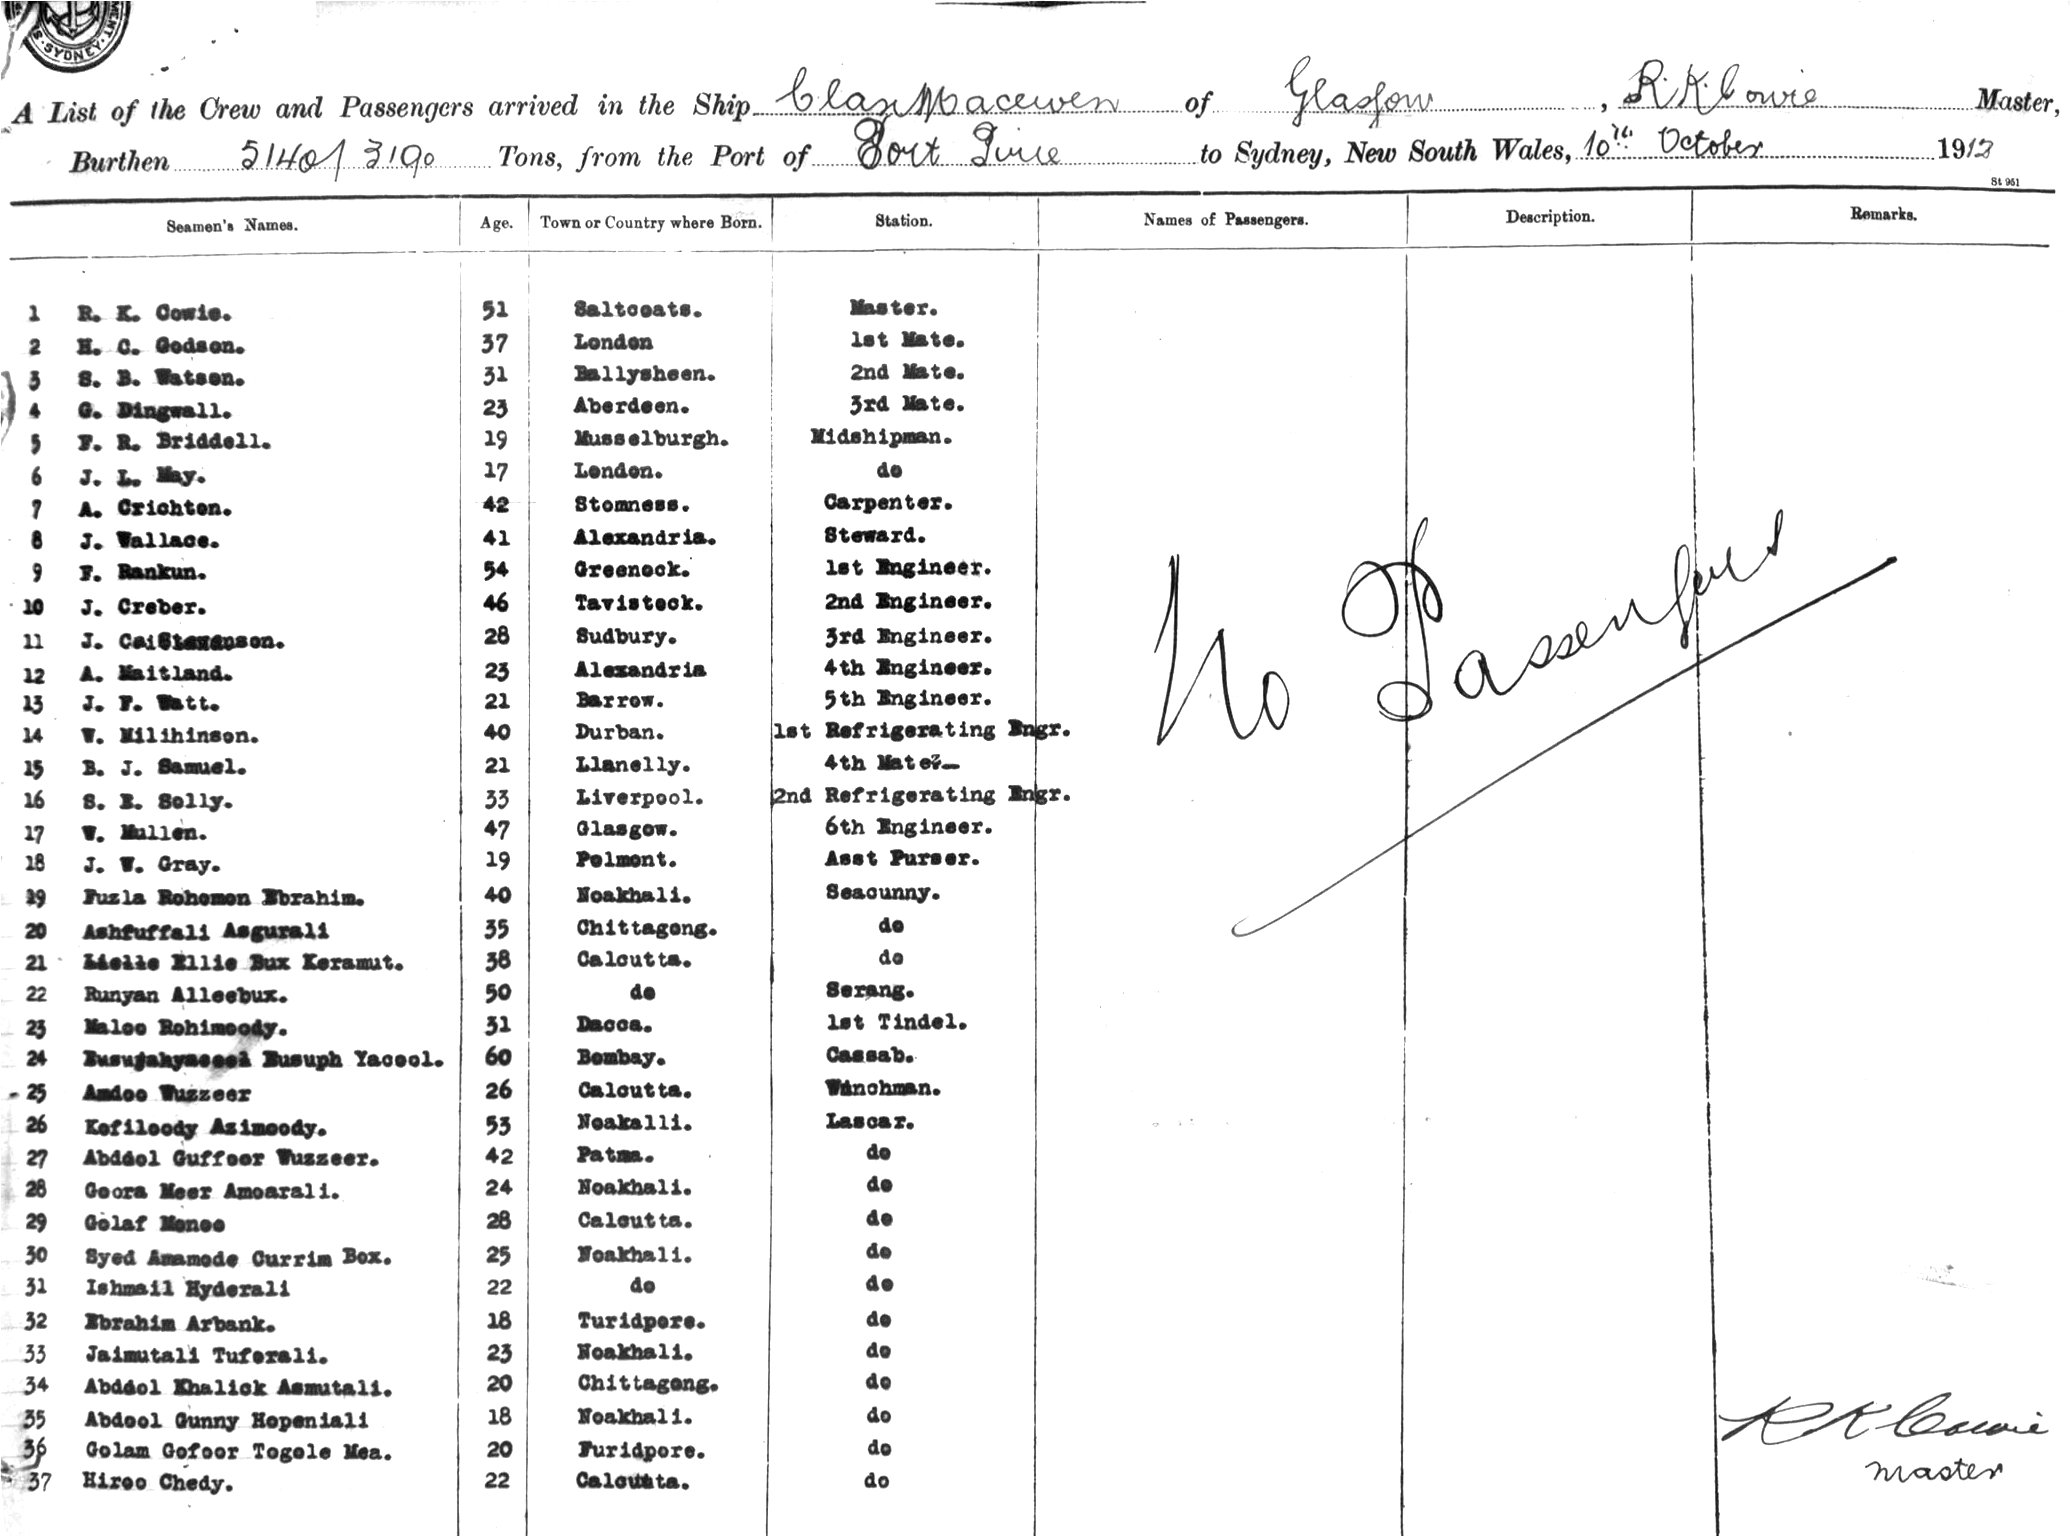 SYDNEY
A List of the Crew and Passengers arrived in the Ship Clan Macewen of Glasgow, R. K. Cowie Master,
Burthen 5140/3190 Tons, from the Port of Port Pirie to Sydney, New South Wales, 10th October 1913
St 961
Seamen's Names. Age. Town or Country where Born. Station. Names of Passengers. Description. Remarks.
1 R. K. Cowie. 51 Saltcoats. Master.
2 H. C. Godson. 37 London 1st Mate.
3 S. B. Watson. 31 Ballysheen. 2nd Mate.
4 G. Dingwall. 23 Aberdeen. 3rd Mate.
5 F. R. Briddell. 19 Musselburgh. Midshipman.
6 J. L. May. 17 London. do
7 A. Crichton. 42 Stomness. Carpenter.
8 J. Wallace. 41 Alexandria. Steward.
9 F. Rankun. 54 Greenock. 1st Engineer.
10 J. Creber. 46 Tavistock. 2nd Engineer.
11 J. Stevenson. 28 Sudbury. 3rd Engineer.
12 A. Maitland. 23 Alexandria 4th Engineer.
13 J. F. Watt. 21 Barrow. 5th Engineer.
14 W. Milihinson. 40 Durban. 1st Refrigerating Engr.
15 B. J. Samuel. 21 Llanelly. 4th Mate
16 S. E. Solly. 33 Liverpool. 2nd Refrigerating Engr.
17 W. Mullen. 47 Glasgow. 6th Engineer.
18 J. W. Gray. 19 Polmont. Asst Purser.
19 Fuzla Rohomon Ebrahim. 40 Noakhali. Seacunny.
20 Ashfuffali Asgurali 35 Chittagong. do
21 Ellie Bux Keramut. 38 Calcutta. do
22 Runyan Alleebux. 50 do Serang.
23 Maloo Rohimoody. 31 Dacca. 1st Tindel.
24 Eusuph Yacool. 60 Bombay. Cassab.
25 Amdoo Wuzzeer 26 Calcutta. Winchman.
26 Kofiloody Azimoody. 53 Noakalli. Lascar.
27 Abdool Guffoor Wuzzeer. 42 Patna. do
28 Goora Meer Amoarali. 24 Noakhali. do
29 Golaf Monoo 28 Calcutta. do
30 Syed Amamode Currim Box. 25 Noakhali. do
31 Ishmail Hyderali 22 do do
32 Ebrahim Arbank. 18 Turidpore. do
33 Jaimutali Tuforali. 23 Noakhali. do
34 Abdool Khalick Asmutali. 20 Chittagong. do
35 Abdool Gunny Hopeniali 18 Noakhali. do
36 Golam Gofoor Togole Mea. 20 Furidpore. do
37 Hiroo Chedy. 22 Calcutta. do
No Passengers
R K Cowie
Master